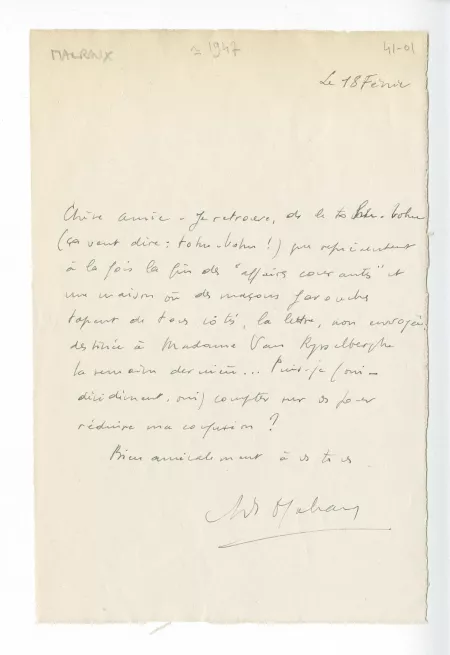 MALRAUX 1947 41-01
Le 18 Février
Chère amie - Je retrouve, ds le tohu-bohu
(ça veut dire : tohu-bohu !) que représentent
à la fois la fin des "affaires courantes" et
une maison où des maçons farouches
tapent de tous côtés, la lettre, non envoyée,
destinée à Madame Van Rysselberghe
la semaine dernière... Puis-je (oui -
décidément, oui) compter sur vs pour
réduire ma confusion ?
Bien amicalement à vs ts